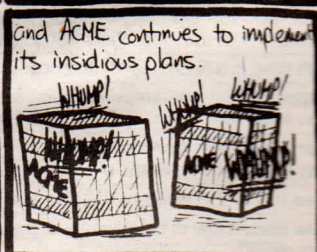 and ACME continues to implement
its insidious plans.
WHUMP!
WHUMP!
WHUMP!
WHUMP!
ACME
ACME